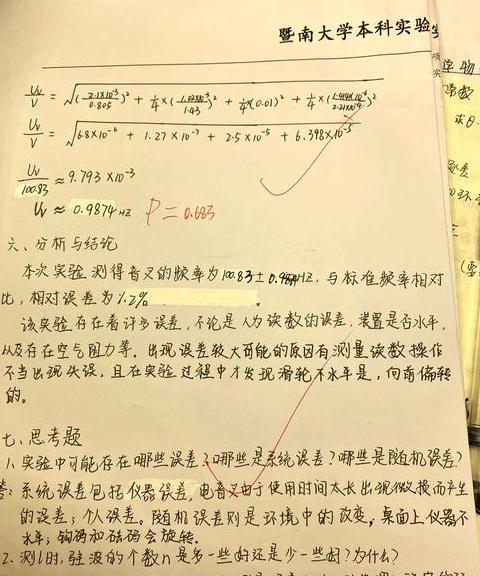 暨南大学本科实验
U_v/V = √((2.1×10⁻³/0.805)² + 1/4×(1.02×10⁻³/1.43)² + 1/4×(0.01)² + 1/4×()²)
U_v/V = √(6.8×10⁻⁶ + 1.27×10⁻⁷ + 2.5×10⁻⁵ + 6.398×10⁻⁵)
U_v/100.83 ≈ 9.793×10⁻³
U_v ≈ 0.9874HZ P=0.683
六、分析与结论
本次实验测得音叉的频率为100.83±HZ,与标准频率相对
比,相对误差为1.2%。
该实验存在着许多误差,不论是人为读数的误差,装置是否水平,
以及存在空气阻力等。出现误差较大可能的原因有测量读数操作
不当出现失误,且在实验过程中才发现滑轮不水平是,向前偏转
的。
七、思考题
1、实验中可能存在哪些误差?哪些是系统误差?哪些是随机误差?
答:系统误差包括仪器误差,电音叉由于使用时间太长出现微换而产生
的误差;个人误差。随机误差则是环境中的改变,桌面上仪器不
水平;钩码和砝码会旋转。
2、测l时,驻波的个数n是多一些好还是少一些好?为什么?